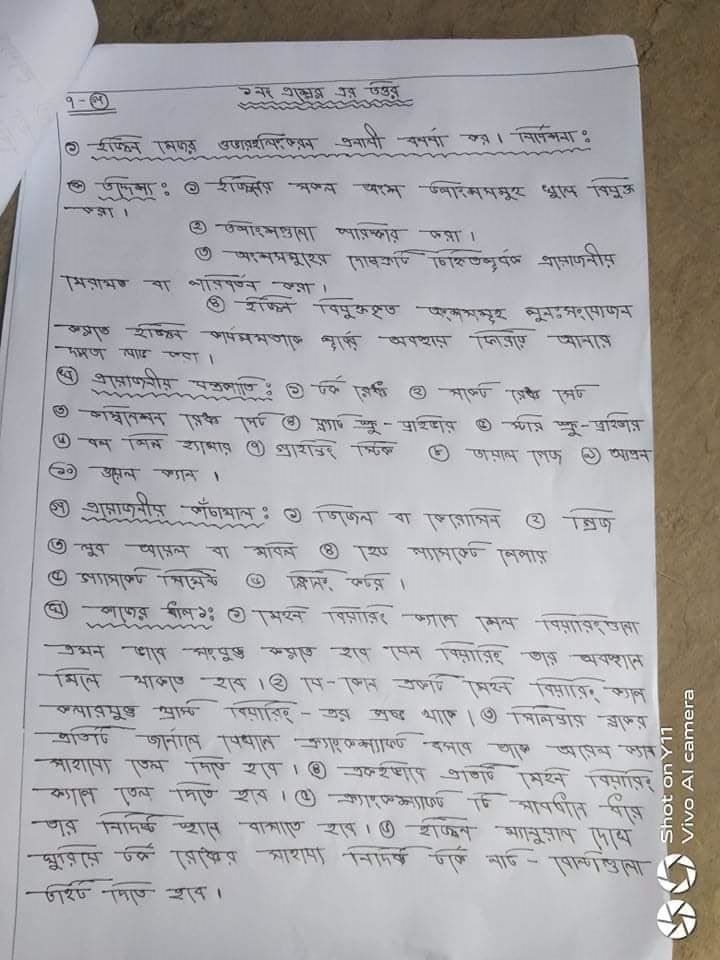 ৭-গ
১নং প্রশ্নের এর উত্তর
১ ইঞ্জিন মেজর ওভারহলিংকরন প্রনালী বর্ণনা কর। নির্দেশনা:
ক উদ্দেশ্য: ১ ইঞ্জিনের সকল অংশ উপাংশসমূহ খুলে বিযুক্ত
করা।
২ উপাংশগুলো পরিষ্কার করা।
৩ অংশসমূহের দোষত্রুটি চিহ্নিতপূর্বক প্রয়োজনীয়
মেরামত বা পরিবর্তন করা।
৪ ইঞ্জিন বিযুক্তকৃত অংশসমূহ পুনঃসংযোজন
করাত ইঞ্জিন কার্যক্ষমতাকে পূর্বের অবস্থায় ফিরিয়ে আনার
দক্ষতা লাভ করা।
খ প্রয়োজনীয় যন্ত্রপাতি: ১ টর্ক রেঞ্চ ২ সকেট রেঞ্চ সেট
৩ কম্বিনেশন রেঞ্চ সেট ৪ ফ্ল্যাট স্ক্রু-ড্রাইভার ৫ স্টার স্ক্রু-ড্রাইভার
৬ বল পিন হ্যামার ৭ প্রাইং স্টিক ৮ ডায়াল গেজ ৯
১০ ওয়েল ক্যান।
গ প্রয়োজনীয় কাঁচামাল: ১ ডিজেল বা কেরোসিন ২ গ্রিজ
৩ লুব অয়েল বা মবিল ৪ হেড গ্যাসকেট পেপার
৫ গ্যাসকেট সিমেন্ট ৬ ক্লিনিং কটন।
ঘ কাজের ধাপ১: ১ মেইন বিয়ারিং ক্যাপে মেল বিয়ারিংগুলো
এমন ভাবে সংযুক্ত করাতে হবে যেন বিয়ারিং তার অবস্থান
মিলে থাকতে হবে। ২ যে-কোন একটি মেইন বিয়ারিং ক্যাপ
কলারযুক্ত থ্রাস্ট বিয়ারিং-এর প্রান্ত থাকে। ৩ সিলিন্ডার ব্লকের
প্রতিটি জার্নালে যেখানে ক্র্যাংকশ্যাফট বসবে তাকে অয়েল ক্যান
সাহায্যে তেল দিতে হবে। ৪ একইভাবে প্রতিটি মেইন বিয়ারিং
ক্যাপে তেল দিতে হবে। ৫ ক্র্যাংকশ্যাফট টি সাবধানে ধরে
তার নির্দিষ্ট স্থানে বসাতে হবে। ৬ ইঞ্জিন ম্যানুয়াল দেখে
ঘুরিয়ে টর্ক রেঞ্চের সাহায্যে নির্দিষ্ট টর্কে নাট-বোল্টগুলো
টাইট দিতে হবে।
Shot on Y11
Vivo AI camera